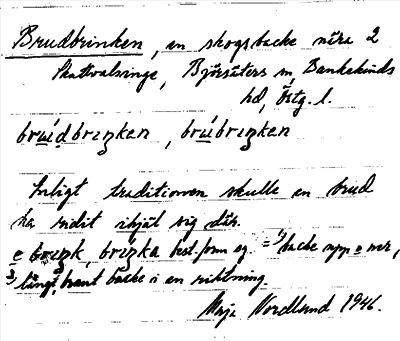 Brudbrinken, en skogsbacke nära 2
Skattvalsvinge, Björsäters sn, Bankekinds
hd, Östg. l.
brúidbriŋken, brúbriŋken
Enligt traditionen skulle en brud
ha ridit ihjäl sig där.
e briŋk, briŋka best. form sg. = 1) backe upp o ner,
2) långt, brant backe i en riktning.
Maja Nordlund 1946.